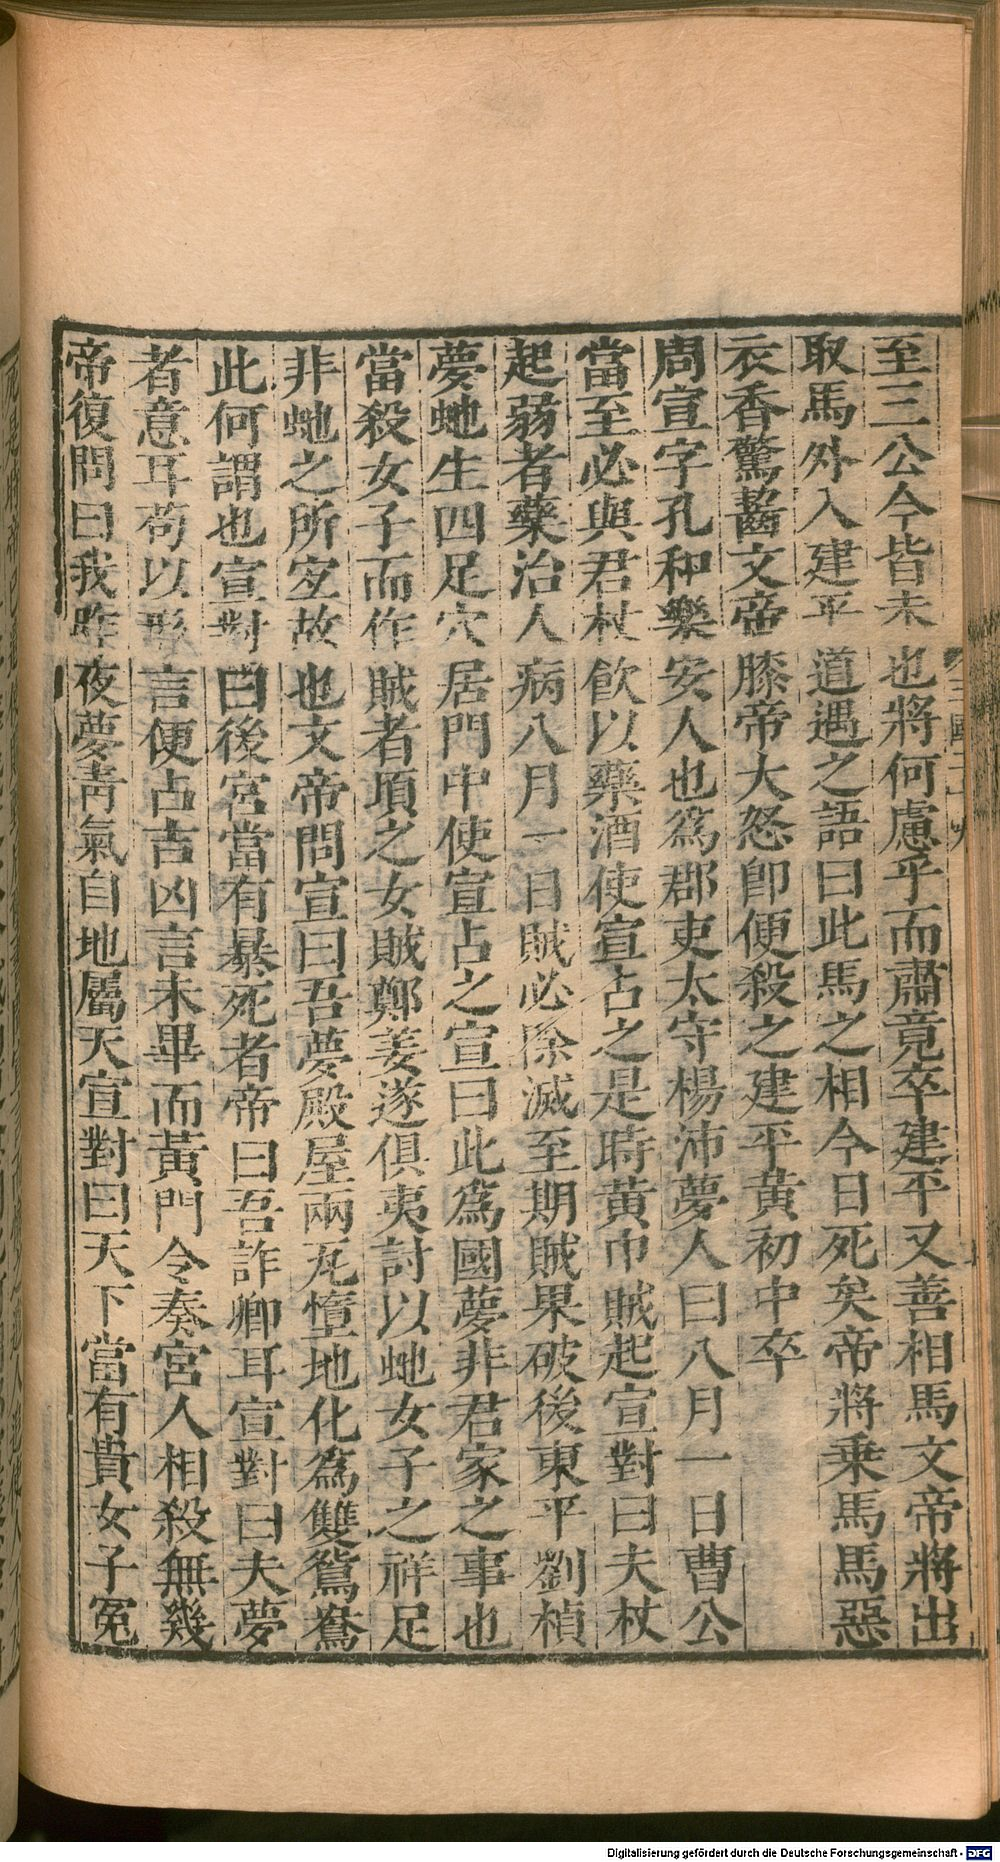 至三公今皆未也將何慮乎而肅竟卒建平又善相馬文帝將出
取馬外入建平道遇之語曰此馬之相今日死矣帝將乘馬馬惡
衣香驚齧文帝膝帝大怒卽便殺之建平黃初中卒
周宣字孔和樂安人也爲郡吏太守楊沛夢人曰八月一日曹公
當至必與君杖飲以藥酒使宣占之是時黃巾賊起宣對曰夫杖
起弱者藥治人病八月一日賊必除滅至期賊果破後東平劉楨
夢虵生四足穴居門中使宣占之宣曰此爲國夢非君家之事也
當殺女子而作賊者項之女賊鄭姜遂俱夷討以虵女子之祥足
非虵之所宜故也文帝問宣曰吾夢殿屋兩瓦墮地化爲雙鴛鴦
此何謂也宣對曰後宮當有暴死者帝曰吾詐卿耳宣對曰夫夢
者意耳苟以形言便占吉凶言未畢而黃門令奏宮人相殺無幾
帝復問曰我昨夜夢靑氣自地屬天宣對曰天下當有貴女子冤
Digitalisierung gefördert durch die Deutsche Forschungsgemeinschaft - DFG